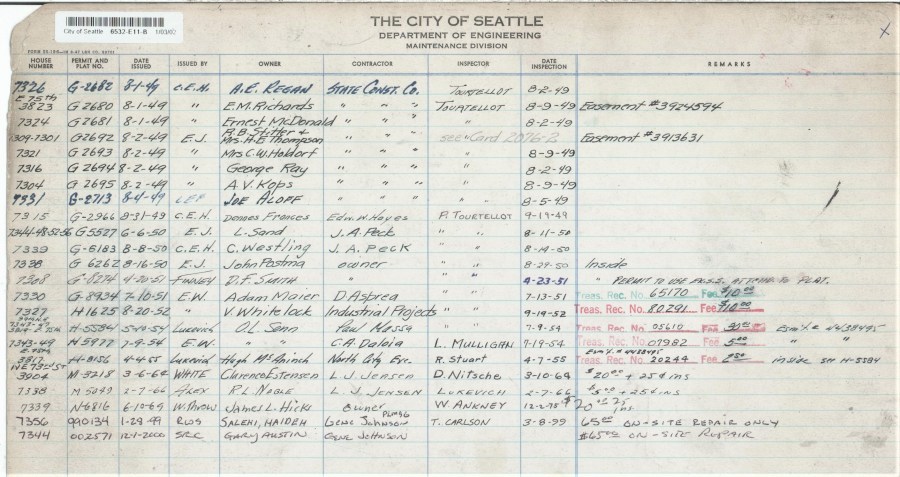 City of Seattle 6532-E11-B
THE CITY OF SEATTLE
DEPARTMENT OF ENGINEERING
MAINTENANCE DIVISION
HOUSE NUMBER PERMIT AND PLAT NO. DATE ISSUED ISSUED BY OWNER CONTRACTOR INSPECTOR DATE INSPECTION REMARKS
7326 G-2682 8-1-49 C.E.H. A.E. REGAN STATE CONST. CO. TOURTELLOT 8-2-49
E 75th
3823 G 2680 8-1-49 " E.M. Richards " " " TOURTELLOT 8-9-49 Easement #3924594
7324 G 2681 8-1-49 " Ernest McDonald " " " 8-2-49
7309-7301 G2692 8-2-49 E.J. R.B. Stitter & Mrs. H.E. Thompson " " " see Card 2076-2 Easement #3913631
7321 G 2693 8-2-49 " Mrs C.W. Holdorf " " " 8-9-49
7316 G 2694 8-2-49 " George Ray " " " 8-2-49
7304 G 2695 8-2-49 " A.V. Kops " " " 8-9-49
7331 G-2713 8-4-49 JOE ALOFF " " " " " 8-5-49
7315 G-2966 8-31-49 C.E.H. Dennes Frances Edw. W. Hayes P. TOURTELLOT 9-19-49
7344-48-52-56 G5527 6-6-50 E.J. L. Sand J.A. Peck " " 8-11-50
7339 G-6183 8-8-50 C.E.H. C. Westling J.A. PECK " " 8-14-50
7338 G 6262 8-16-50 E.J. John Postma owner " " 8-29-50 Inside
7308 G-8274 4-20-51 FINNEY D.F. SMITH " " 4-23-51 " PERMIT TO USE POSS. ATTACHED TO PLAT.
7330 G-8934 7-10-51 E.W. Adam Maier D. Asprea " " 7-13-51 Treas. Rec. No. 65170 Fee $10.00
7327 H1625 8-20-52 " V. Whitelock Industrial Projects " " 9-19-52 Treas. Rec. No. 80291 Fee $10.00
H-5584 5-20-54 Lukevich O.L. Senn Paul Massa " " 7-9-54 Treas. Rec. No. 05610 Esm't # 4438495
7343-49 H-5977 7-9-54 E.W. " " C.A. Daloia L. MULLIGAN 7-19-54 Treas. Rec. No. 07982 Fee 5.00 " "
E. 75th
5817 H-8156 4-4-55 Lukevich Hugh McAninch North City Exc. R. Stuart 4-7-55 Esm't # 4438495 Treas. Rec. No. 20244 Fee 2.50 inside see H-5584
NE 73rd ST
3904 M-3218 3-6-64 WHITE Clarence Estensen L.J. Jensen D. Nitsche 3-10-64 $20.00 + 25¢ ins
7338 M 5049 2-7-66 ALEX R.L. NOBLE L. J. JENSEN LUKEVICH 2-7-66 $5.00 + 25¢ ins
7339 N-6816 6-10-69 James L. Hicks owner W. ANKNEY 12-2-75
7356 990134 1-29-99 RWS SALEHI, HAIDEH GENE JOHNSON T. CARLSON 3-8-99 65.00 ON-SITE REPAIR ONLY
7344 002571 12-1-2000 SRC GARY AUSTIN GENE JOHNSON $65.00 ON-SITE REPAIR